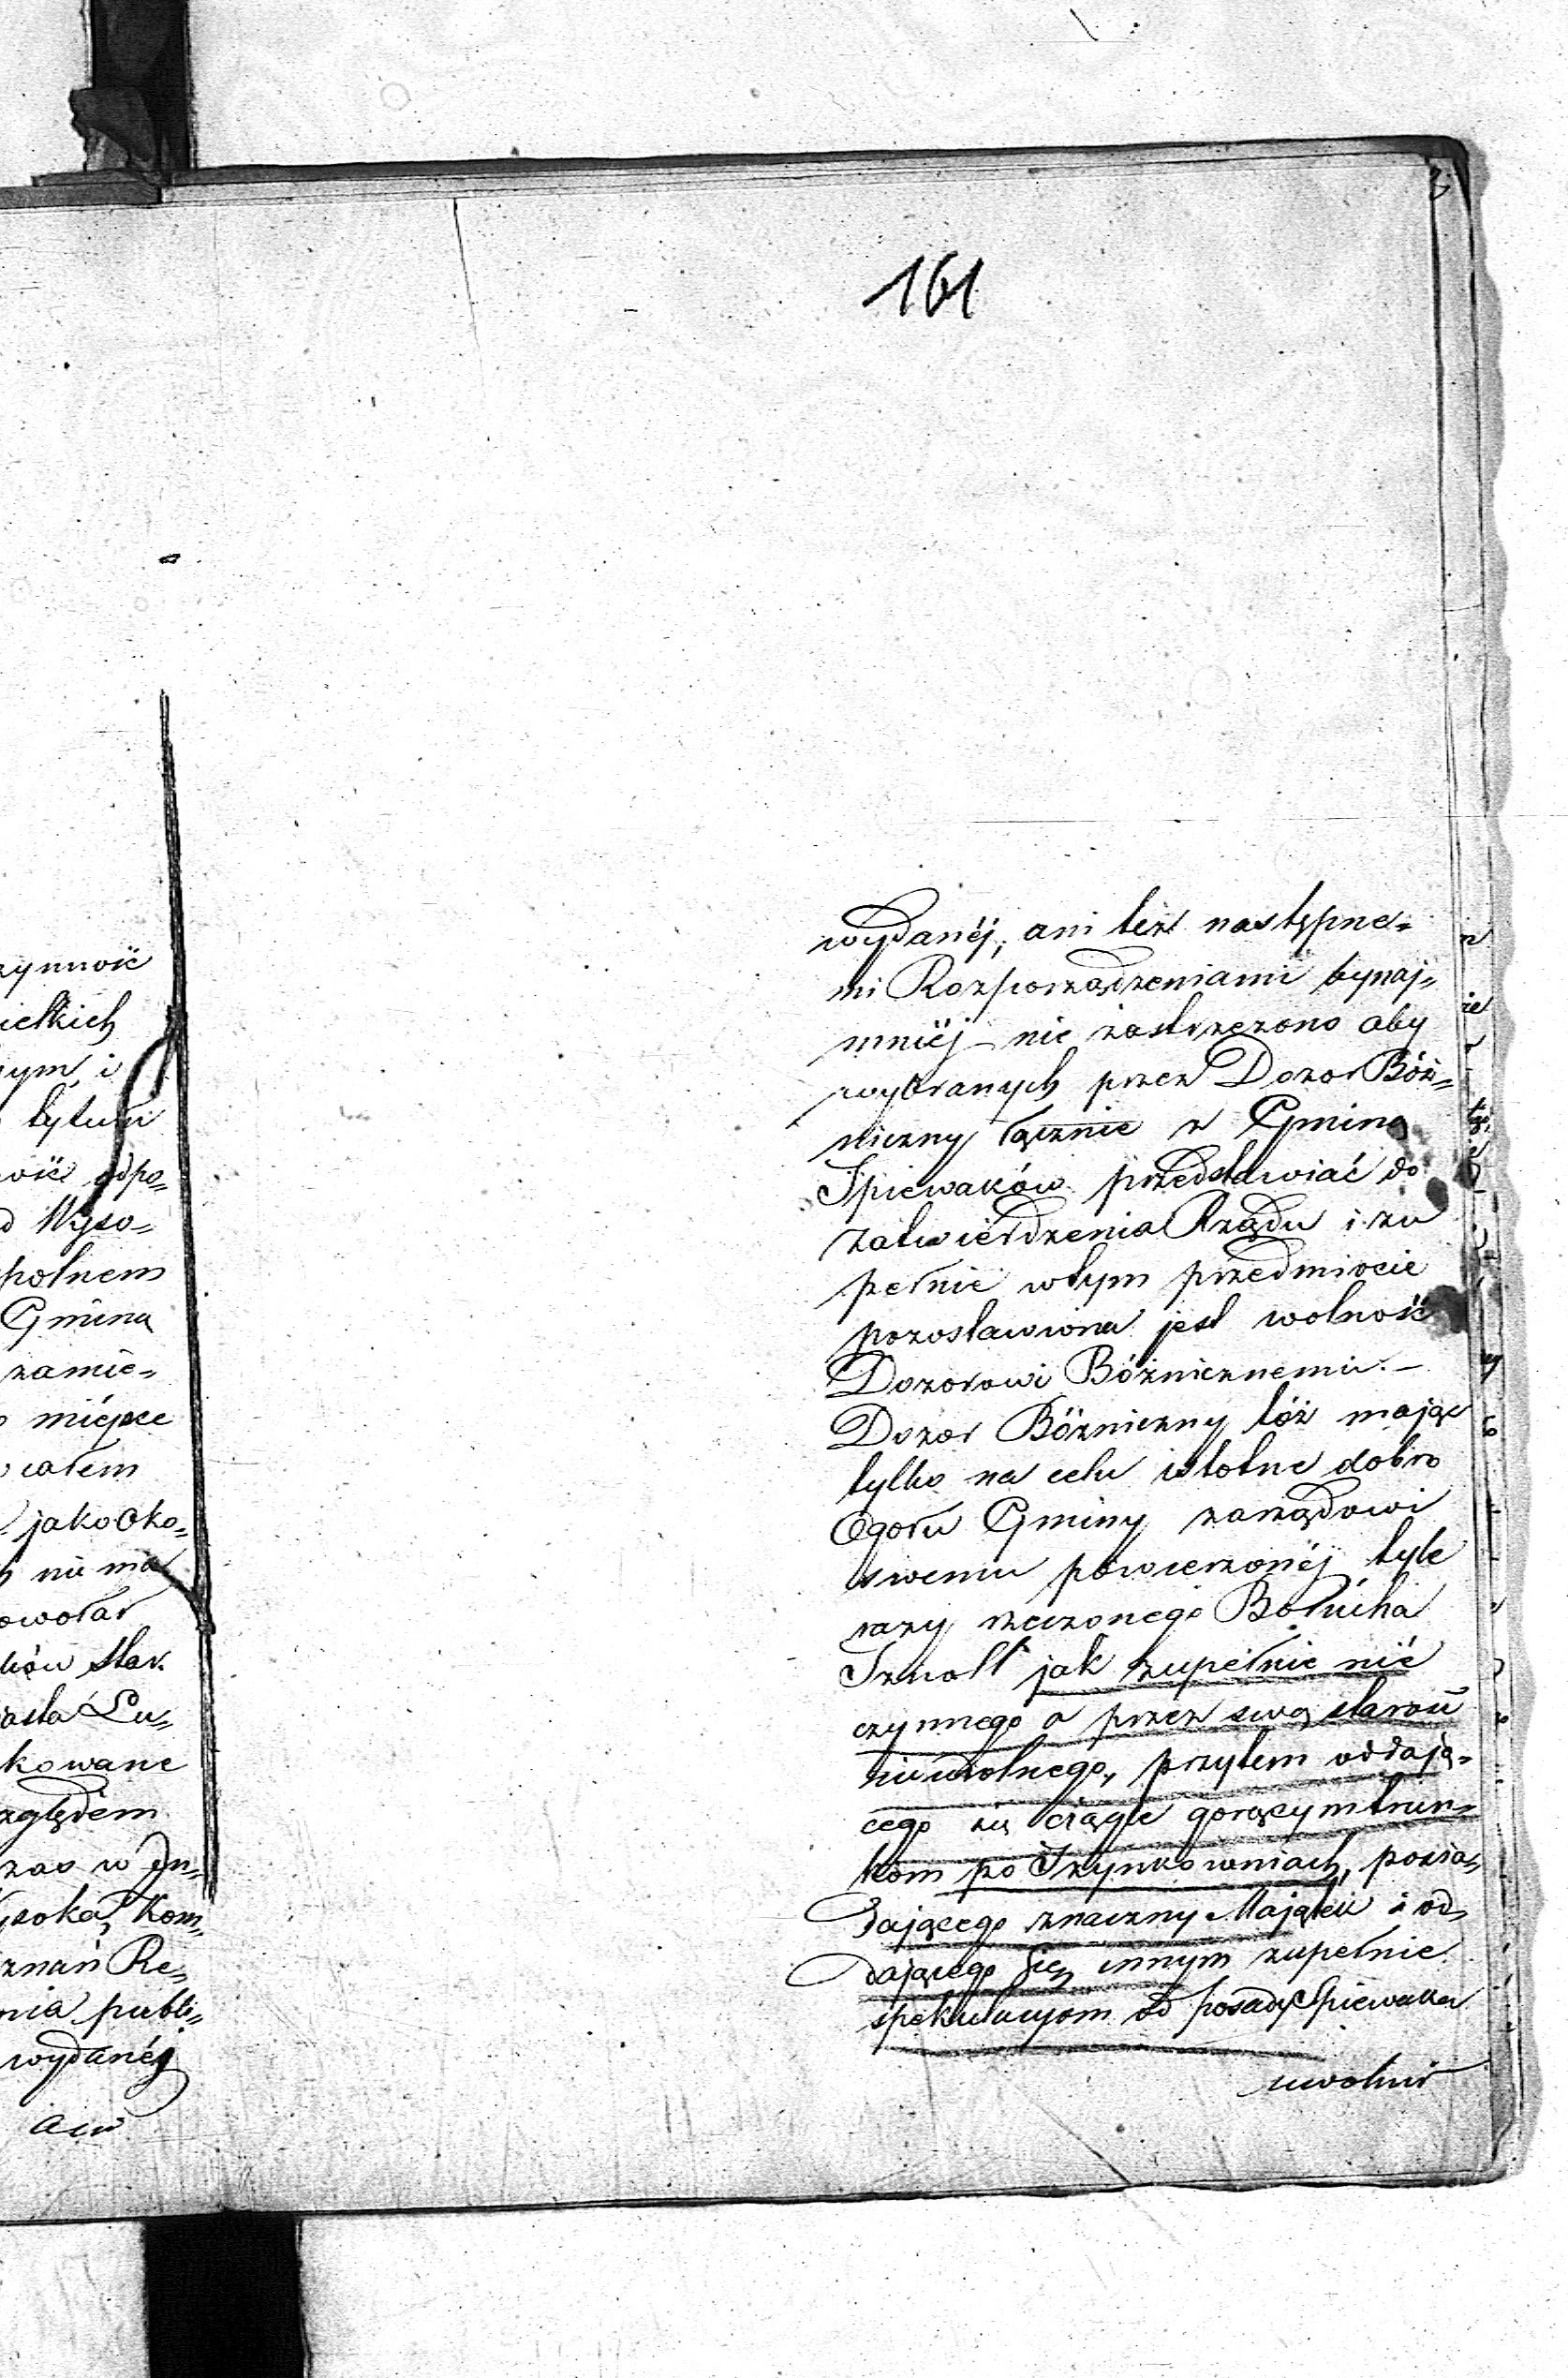 161
zynność
ielkich
nym i
tytułu
ność odpo„
d Wyso„
polnem
Gmina
zamie„
miéysce
całem
jako Oko„
nie ma
owołał
ków Star.
asta Lu„
kowane
względem
zas w In„
ysoką Kom„
znań Re„
nia publi„
wydanéj
ani
wydanéj, ani też następne„
mi Rozporządzeniami bynaj„
mniéj nie zastrzeżono aby
wybranych przez Dozor Bóż„
niczny łącznie z Gminą
Spiewaków przedstawiać do
zatwierdzenia Rządu i zu
pełnie wtym przedmiocie
pozostawiona jest wolność
Dozorowi Bóżnicznemu. –
Dozor Bóżniczny też mając
tylko na celu istotne dobro
Ogołu Gminy zarządowi
swemu powierzonéj tyle
razy rzeczonego Borucha
Szmoll jak zupełnie nié
czynnego a przez swą starość
niezdolnego, przytem oddają„
cego się ciągle gorącym trun„
kom po Szynkowniach, posia„
dającego znaczny Majątek i od„
dającego się innym zupełnie
spekulacyom od posady Spiewaka
uwolnił